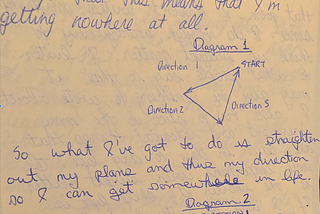 this means that I'm
getting nowhere at all.
Diagram 1
Direction 1
START
Direction 2
Direction 3
So what I've got to do is straighten
out my plans and thus my direction
so I can get somewhere in life.
Diagram 2